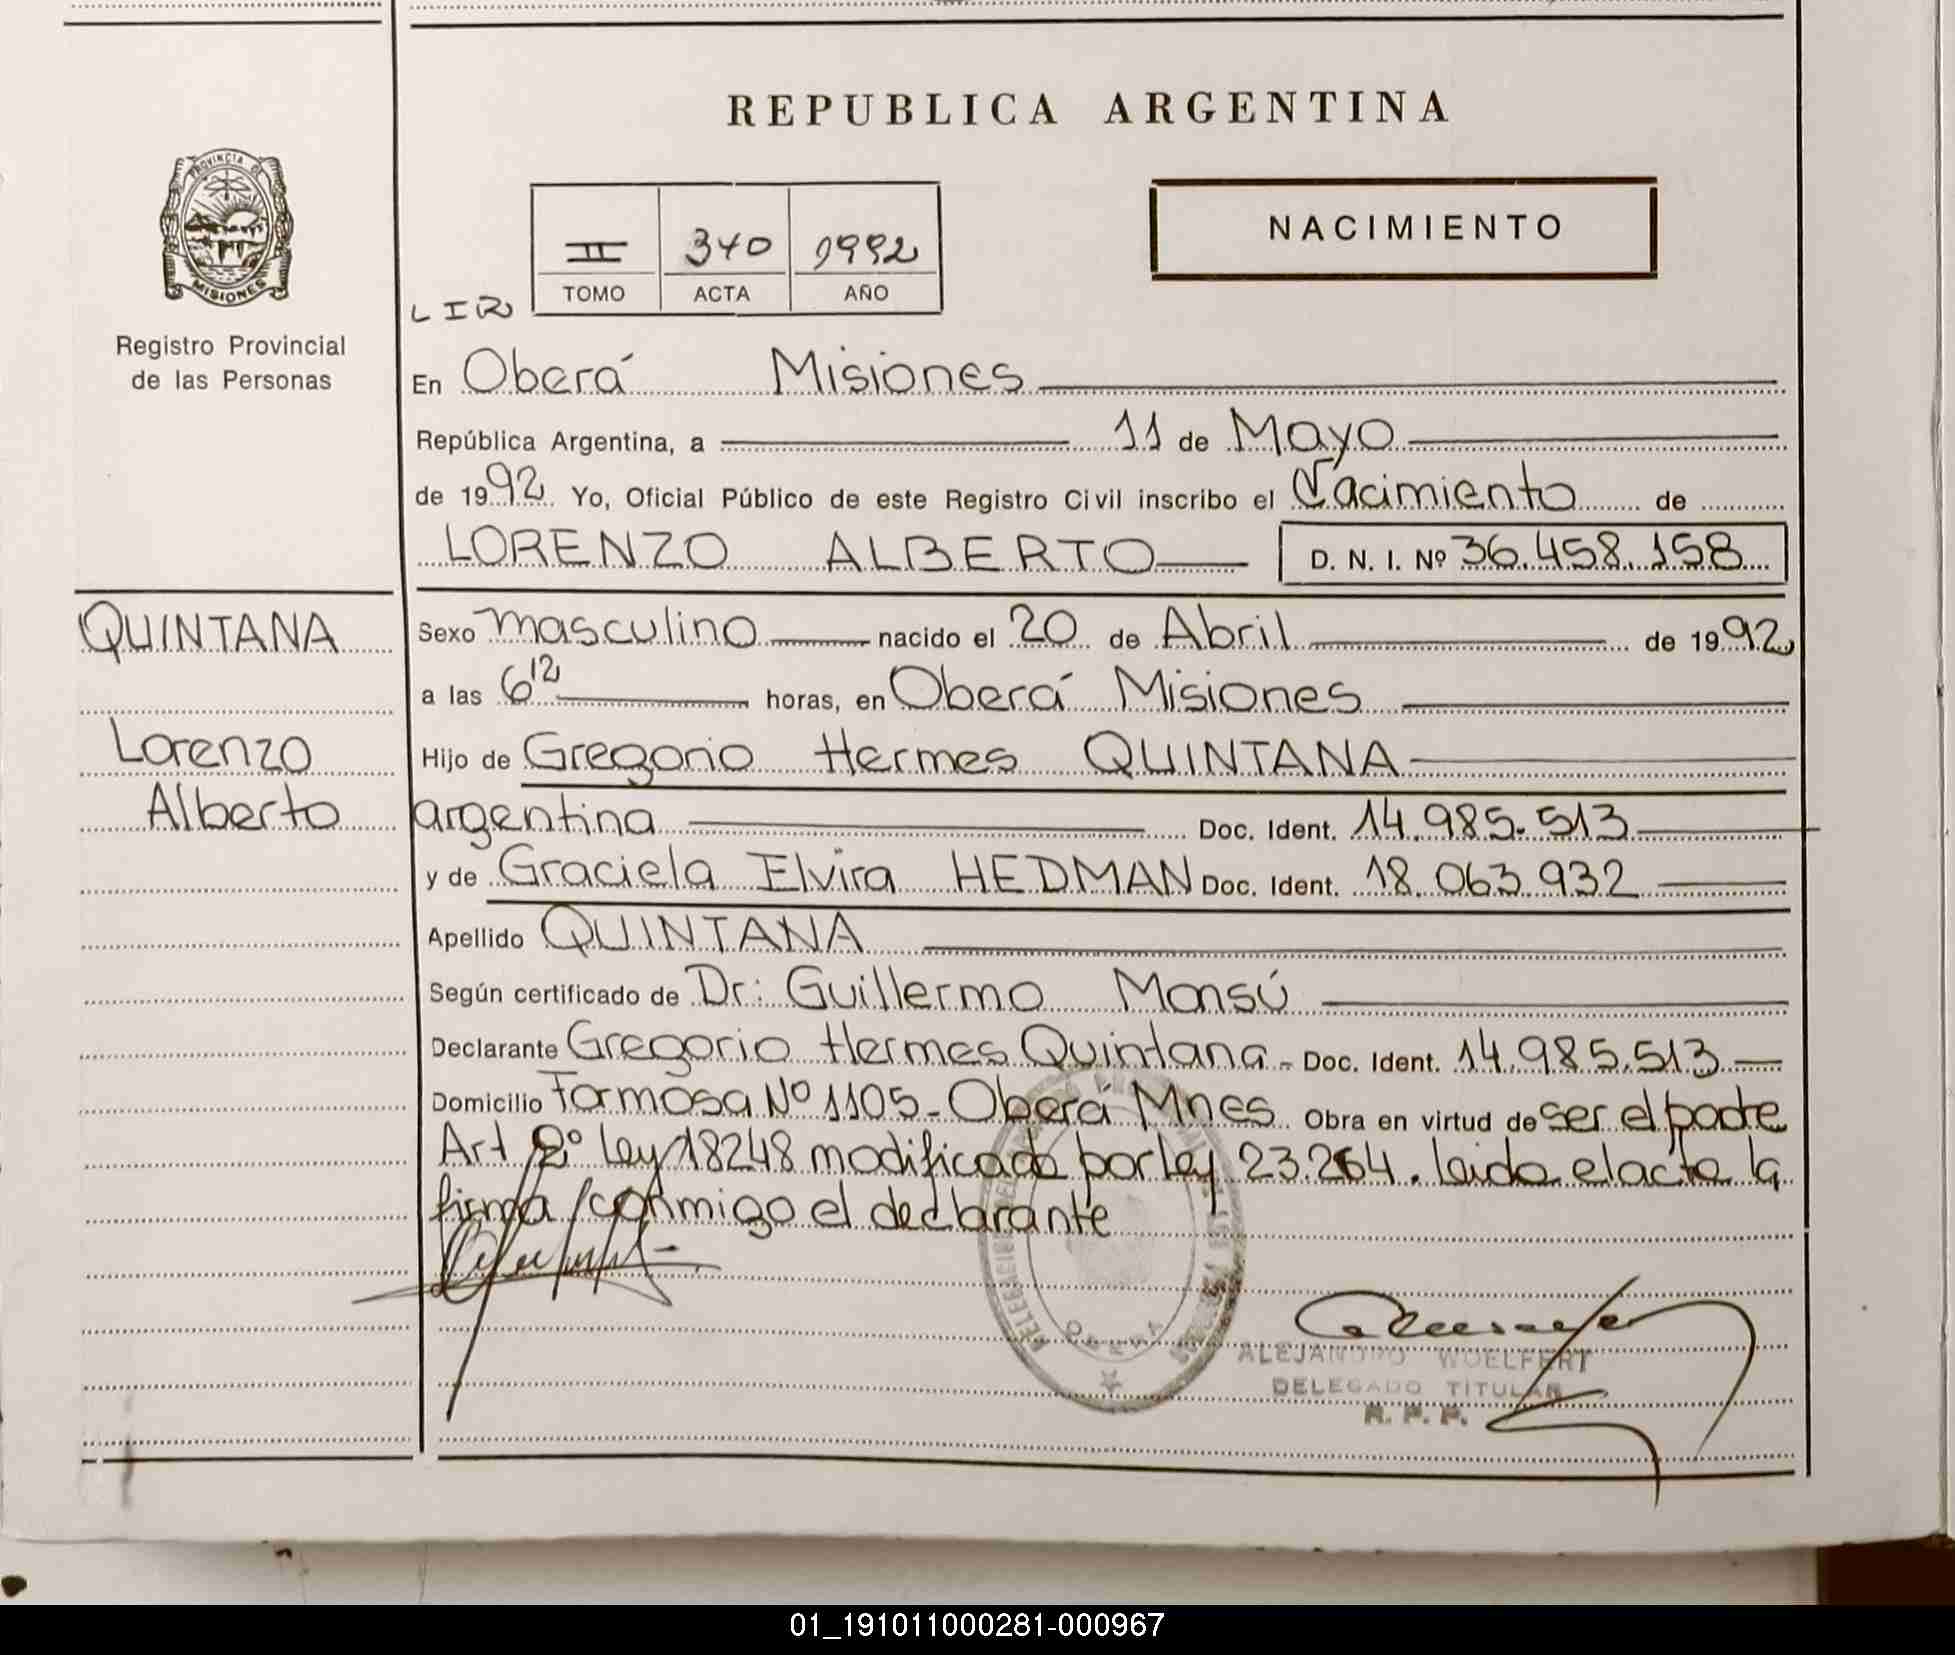 REPUBLICA ARGENTINA
PROVINCIA DE
MISIONES
Registro Provincial
de las Personas
NACIMIENTO
II 340 1992
TOMO ACTA AÑO
LIR
En Oberá Misiones
República Argentina, a 11 de Mayo
de 1992 Yo, Oficial Público de este Registro Civil inscribo el Nacimiento de
LORENZO ALBERTO D. N. I. Nº 36.458.158
QUINTANA
Lorenzo
Alberto
Sexo masculino nacido el 20 de Abril de 1992
a las 6 12 horas, en Oberá Misiones
Hijo de Gregorio Hermes QUINTANA
argentina Doc. Ident. 14.985.513
y de Graciela Elvira HEDMAN Doc. Ident. 18.063.932
Apellido QUINTANA
Según certificado de Dr: Guillermo Monsú
Declarante Gregorio Hermes Quintana - Doc. Ident. 14.985.513
Domicilio Formosa Nº 1105 - Oberá Mnes. Obra en virtud de ser el padre
Art 2º Ley 18248 modificado por ley 23.264. leida el acta la
firma conmigo el declarante
OBERA
ALEJANDRO WOELFERT
DELEGADO TITULAR
R. P. P.
01_191011000281-000967